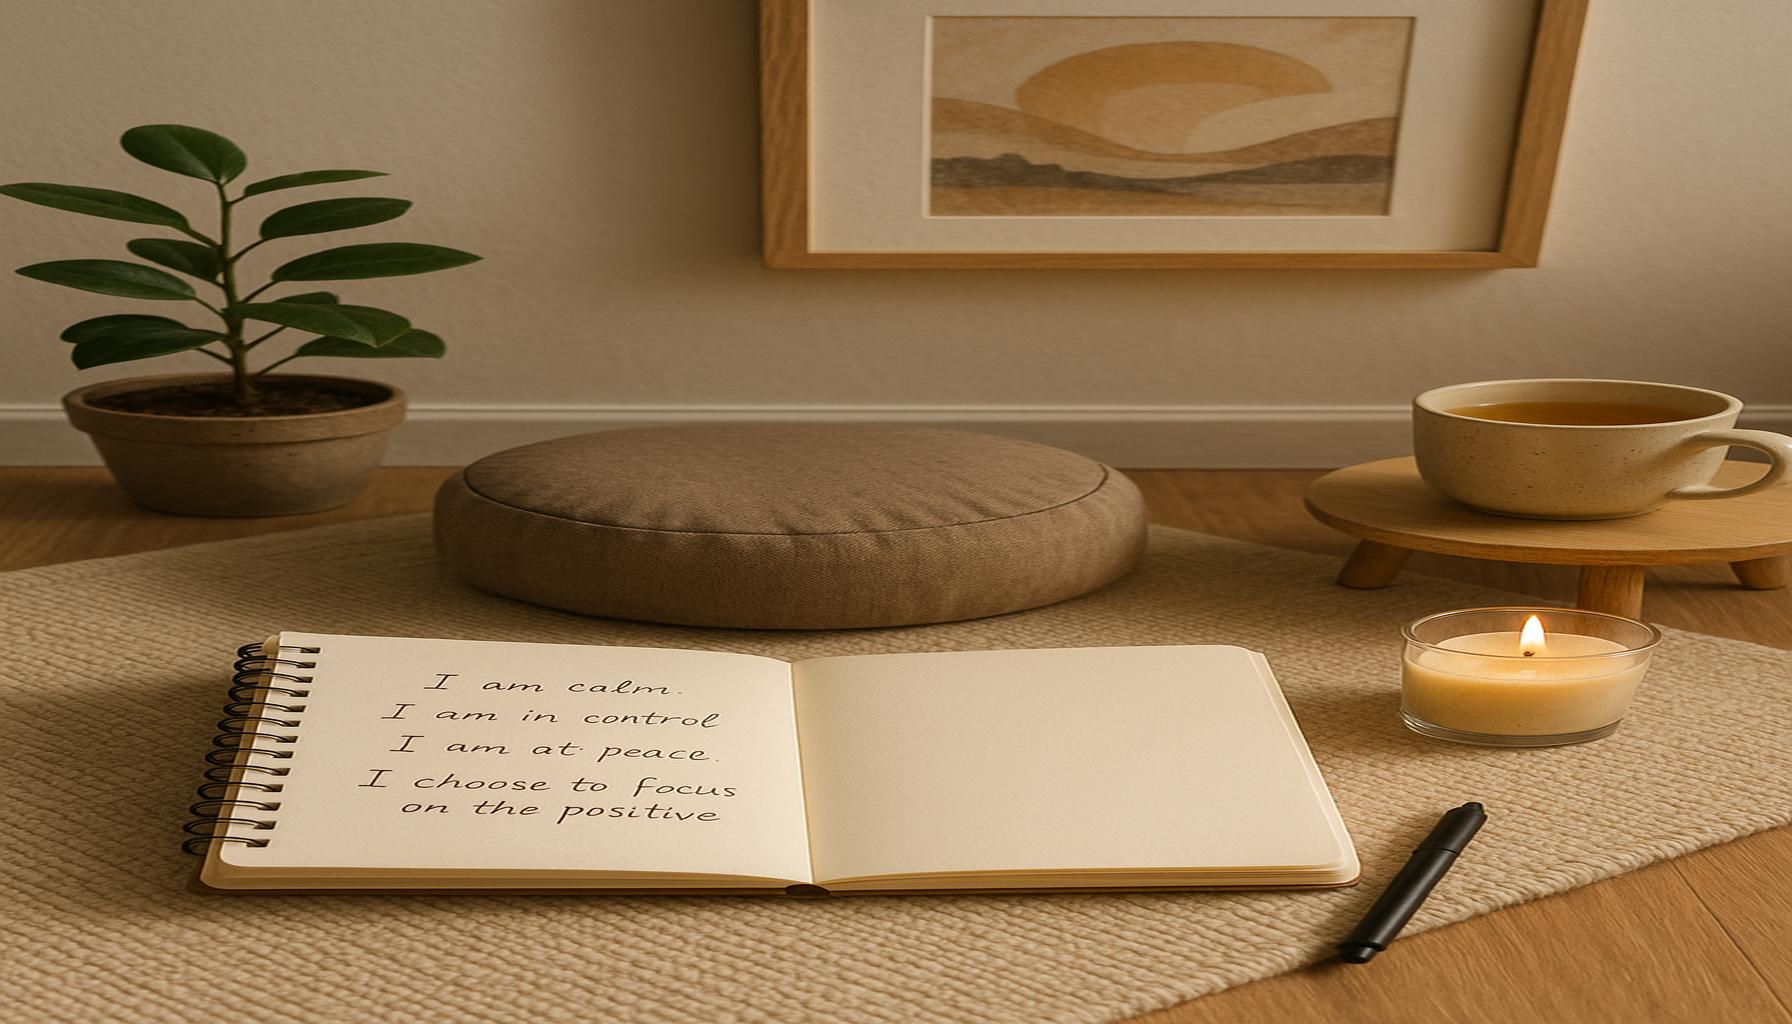 I am calm.
I am in control
I am at peace.
I choose to focus
on the positive